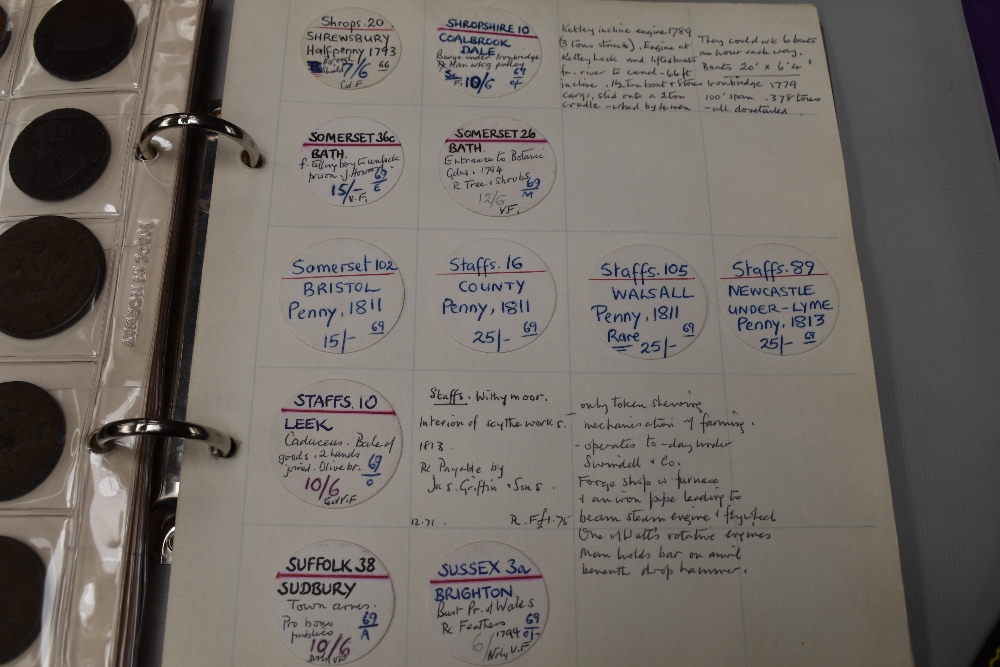 Shrops. 20
SHREWSBURY
Halfpenny 1793
7/6 66
Gd F
SHROPSHIRE 10
COALBROOK
DALE
Barge under Ironbridge
Rx Man wkg pulley
F. 10/6 69
Ketley incline engine 1789
(3 tons struck). Engine at
Ketley Lock and lifted boats
fm. river to canal - 66 ft
incline. 1½ ton boat + 5 tons
cargo, slid onto a 2 ton
cradle - whed by 4 men
They could wk 6 boats
an hour each way.
Boats 20' × 6'4"
Ironbridge 1779
100' span. 378 tons
- all dovetailed
SOMERSET 36c
BATH.
f. telling boy to unlock
prison. J Howard
15/- 69 E
V.F.
SOMERSET 26
BATH
Entrance to Botanic
Gdns. 1794
R Tree + Shrubs
12/6 69 M
VF.
Somerset 102
BRISTOL
Penny, 1811
15/- 69
Staffs. 16
COUNTY
Penny, 1811
25/- 69
Staffs. 105
WALSALL
Penny, 1811
Rare 25/- 69
Staffs. 89
NEWCASTLE
UNDER-LYME
Penny, 1813
25/- 68
STAFFS. 10
LEEK
Caduceus. Bale of
goods. 2 hands
joined. Olive br. 69 O
10/6
Gd V.F
Staffs. Withymoor.
Interior of scythe works.
1813.
Rx Payable by
Jas. Griffin + Sons.
12.71. R.F £1.75
- only token showing
mechanisation of farming.
- operates to-day under
Swindell + Co.
Forge shop w. furnace
+ an iron pipe leading to
beam steam engine + flywheel
One of Watt's rotative engines
Man holds bar on anvil
beneath drop hammer.
SUFFOLK 38
SUDBURY
Town arms.
Pro bono
publico 69 A
10/6
VF
SUSSEX 3a
BRIGHTON
Bust Pr. of Wales
Rx Feathers 69
6/ 1794
Nrly V.F
MADE IN NORWAY